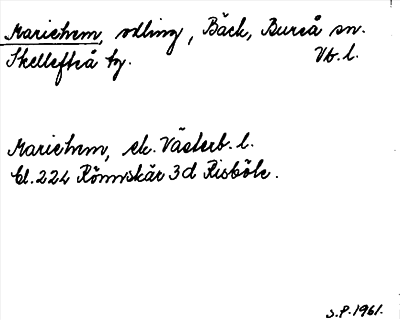 Mariehem, odling, Bäck, Bureå sn.
Skellefteå tg. Vb. l.
Mariehem, ek. Västerb. l.
Bl. 224 Rönnskär 3d Risböle.
S.P. 1961.